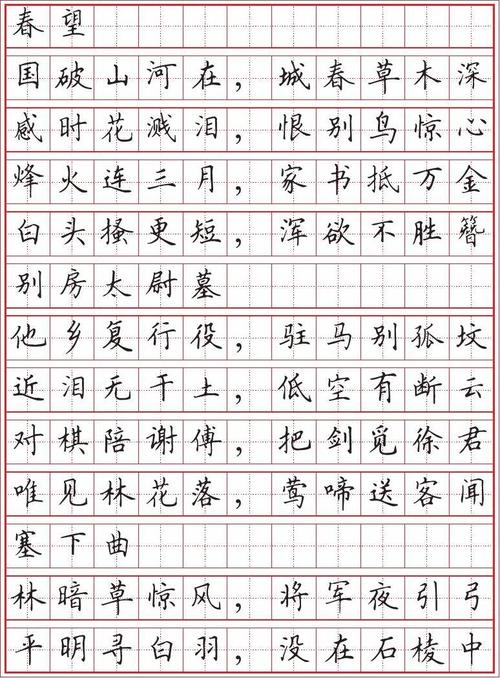 春望
国破山河在，城春草木深
感时花溅泪，恨别鸟惊心
烽火连三月，家书抵万金
白头搔更短，浑欲不胜簪
别房太尉墓
他乡复行役，驻马别孤坟
近泪无干土，低空有断云
对棋陪谢傅，把剑觅徐君
唯见林花落，莺啼送客闻
塞下曲
林暗草惊风，将军夜引弓
平明寻白羽，没在石棱中